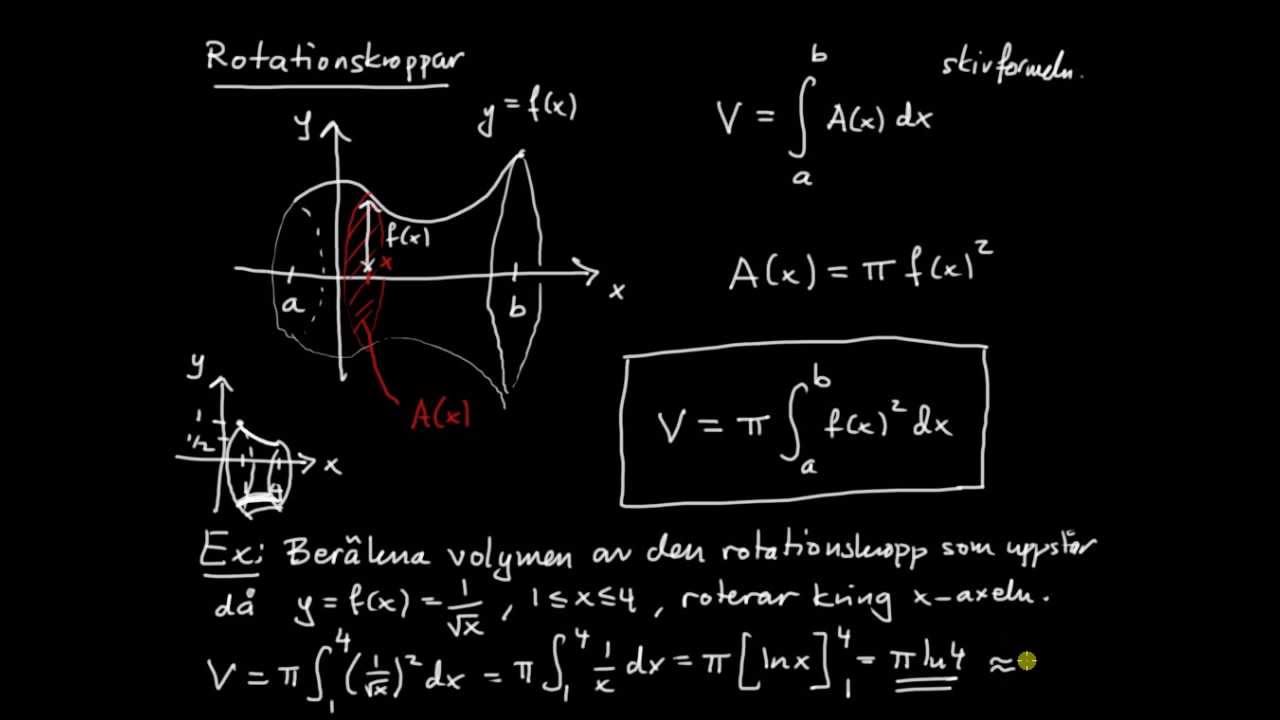 Rotationskroppar
skivformeln.
y = f(x)
V = ∫ₐᵇ A(x) dx
y
f(x)
x
a
b
x
A(x) = π f(x)²
A(x)
V = π ∫ₐᵇ f(x)² dx
y
1
1/2
x
Ex: Beräkna volymen av den rotationskropp som uppstår
då y = f(x) = 1/√x , 1 ≤ x ≤ 4 , roterar kring x-axeln.
V = π ∫₁⁴ (1/√x)² dx = π ∫₁⁴ 1/x dx = π [ln x]₁⁴ = π ln 4 ≈